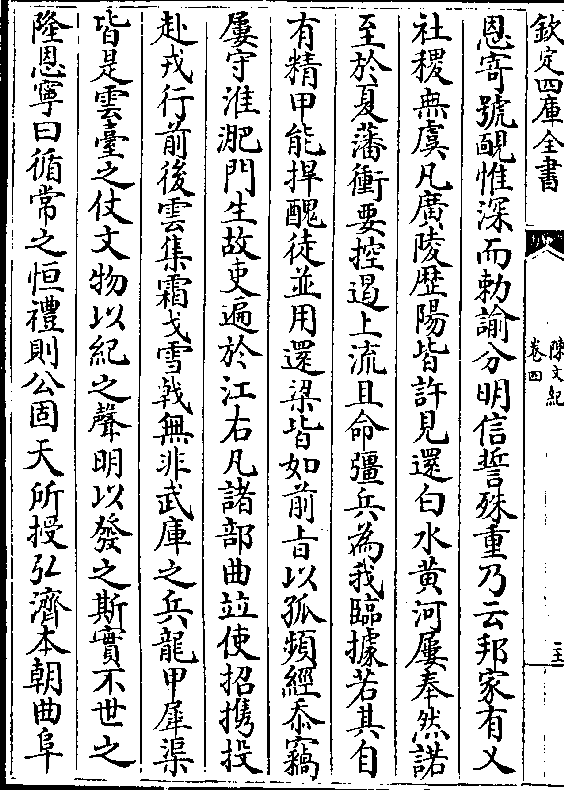 欽定四庫全書
陳文紀
卷四
二十二
恩寄號覼惟深而勅諭分明信誓殊重乃云邦家有乂
社稷無虞凡廣陵歴陽皆許見還白水黄河屢奉然諾
至於夏藩衝要控遏上流且命彊兵為我臨據若其自
有精甲能捍醜徒並用還梁皆如前㫖以孤頻經忝竊
屢守淮淝門生故吏遍於江右凡諸部曲竝使招携投
赴戎行前後雲集霜戈雪㦸無非武庫之兵龍甲犀渠
皆是雲臺之仗文物以紀之聲明以發之斯實不世之
隆恩寧曰循常之恒禮則公固天所授弘濟本朝曲阜